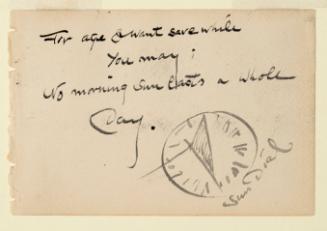 For age & want save while
You may;
No morning sun lasts a whole
Day.
Sun Dial